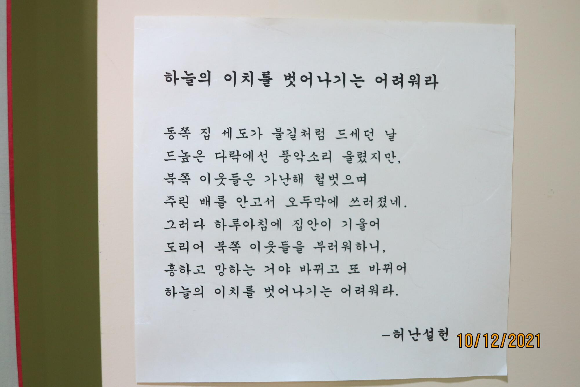 하늘의 이치를 벗어나기는 어려워라
동쪽 집 세도가 불길처럼 드세던 날
드높은 다락에선 풍악소리 울렸지만,
북쪽 이웃들은 가난해 헐벗으며
주린 배를 안고서 오두막에 쓰러졌네.
그러다 하루아침에 집안이 기울어
도리어 북쪽 이웃들을 부러워하니,
흥하고 망하는 거야 바뀌고 또 바뀌어
하늘의 이치를 벗어나기는 어려워라.
-허난설헌
10/12/2021